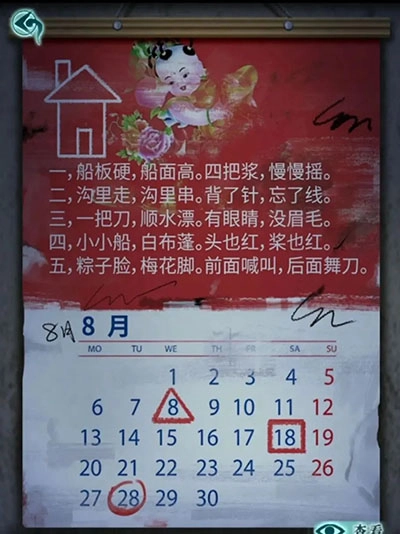 一，船板硬，船面高。四把浆，慢慢摇。
二，沟里走，沟里串。背了针，忘了线。
三，一把刀，顺水漂。有眼睛，没眉毛。
四，小小船，白布蓬。头也红，桨也红。
五，粽子脸，梅花脚。前面喊叫，后面舞刀。
8月 8 月
MO TU WE TH FR SA SU
1 2 3 4 5
6 7 8 9 10 11 12
13 14 15 16 17 18 19
20 21 22 23 24 25 26
27 28 29 30
查看